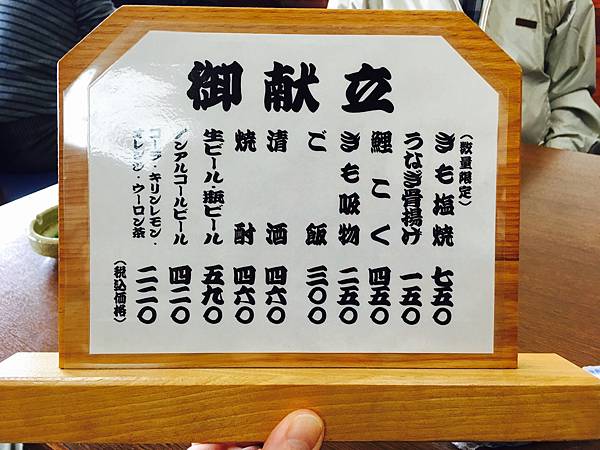 御献立
(数量限定)
きも塩焼 七五〇
うなぎ骨揚げ 一五〇
鯉こく 四五〇
きも吸物 二五〇
ご飯 三〇〇
清酒 四六〇
焼酎 四六〇
生ビール・瓶ビール 五九〇
ノンアルコールビール 四二〇
コーラ・キリンレモン・
オレンジ・ウーロン茶 二二〇
(税込価格)